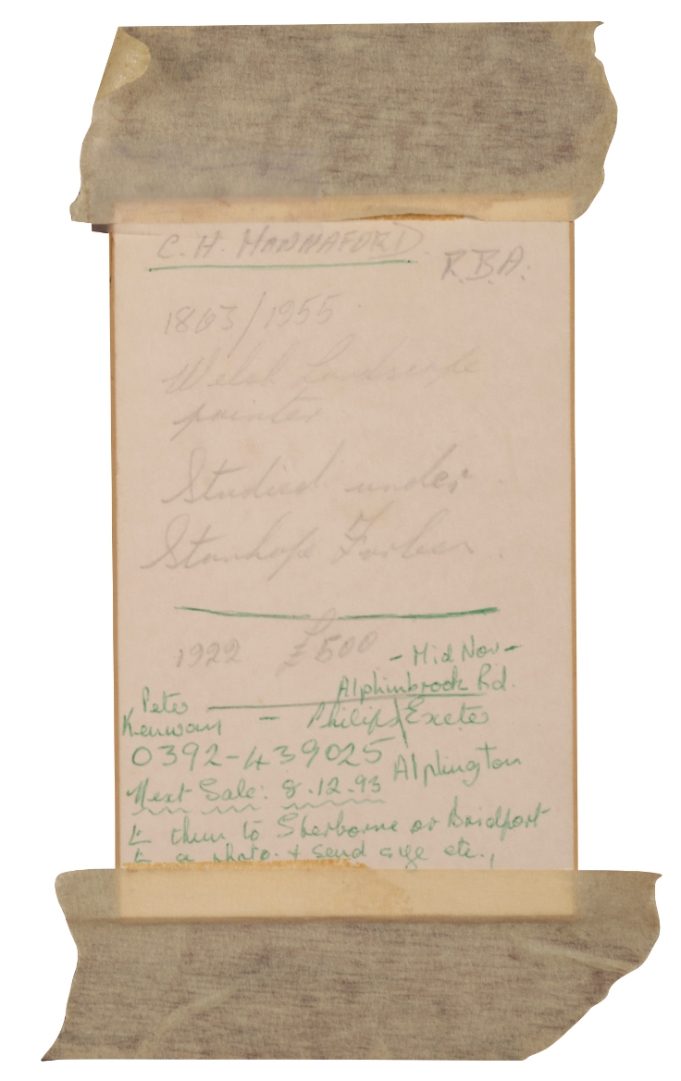 C. H. HANNAFORD
R.B.A.
1863/1955
Welsh Landscape
painter
Studied under
Stanhope Forbes
1922 £500
- Mid Nov -
Alphinbrook Rd.
Peter
- Philips Exeter
0392-439025
Alphington
Next Sale: 8.12.93
them to Sherborne or Bridport
a photo. + send size etc.,